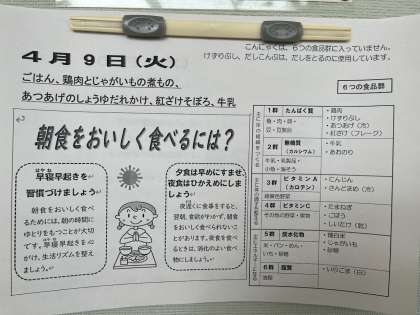 こんにゃくは、6つの食品群に入っていません。
けずりぶし、だしこんぶは、だしをとるのに使用しています。
4月9日(火)
ごはん、鶏肉とじゃがいもの煮もの、
あつあげのしょうゆだれかけ、紅ざけそぼろ、牛乳
6つの食品群
朝食をおいしく食べるには?
早寝早起きを
習慣づけましょう
朝食をおいしく食べ
るためには、朝の時間に
ゆとりをもつことが大切
です。早寝早起きを心
がけ、生活リズムを整え
ましょう。
夕食は早めにすませ、
夜食はひかえめにしま
しょう
夜遅くに食事をすると、
翌朝、食欲がわかず、朝食
をおいしく食べられない
ことがあります。夜食を食
べるときは、消化のよい食
べ物にしましょう。
1群 たんぱく質
魚・肉・卵・
豆・豆製品
・鶏肉
・けずりぶし
・あつあげ(冷)
・紅ざけ(フレーク)
2群 無機質
(カルシウム)
牛乳・乳製品・
小魚・海そう
・牛乳
・あおのり
3群 ビタミンA
(カロテン)
緑黄色野菜
・にんじん
・さんどまめ(冷)
4群 ビタミンC
その他の野菜・果物
・たまねぎ
・ごぼう
・しいたけ(乾)
5群 炭水化物
米・パン・めん・
いも・砂糖
・精白米
・じゃがいも
・砂糖
6群 脂質
油脂
・いりごま(白)